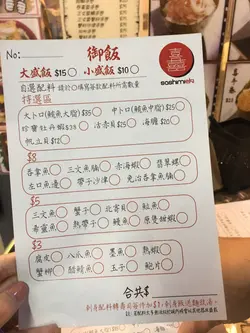 No:
御飯
囍
sashimi
大盛飯 $15 小盛飯 $10
自選配料 請於○填寫各款配料所需數量
特選區
大トロ(鮪魚大腩)$35 中トロ(鮪魚中腩)$25
珍寶牡丹蝦$35 活赤貝$25 海膽$20
帆立貝$12
$8
吞拿魚 三文魚腩 赤海蝦 翡翠螺
左口魚邊 帶子沙律 免治吞拿魚腩
$5
三文魚 蟹子 北寄貝 魷魚
希靈魚 熟帶子 鰻魚 原煲甜蝦
$3
腐皮 八爪魚 墨魚 熱蝦
蟹柳 醋鯖魚 玉子 鮑片
合共$